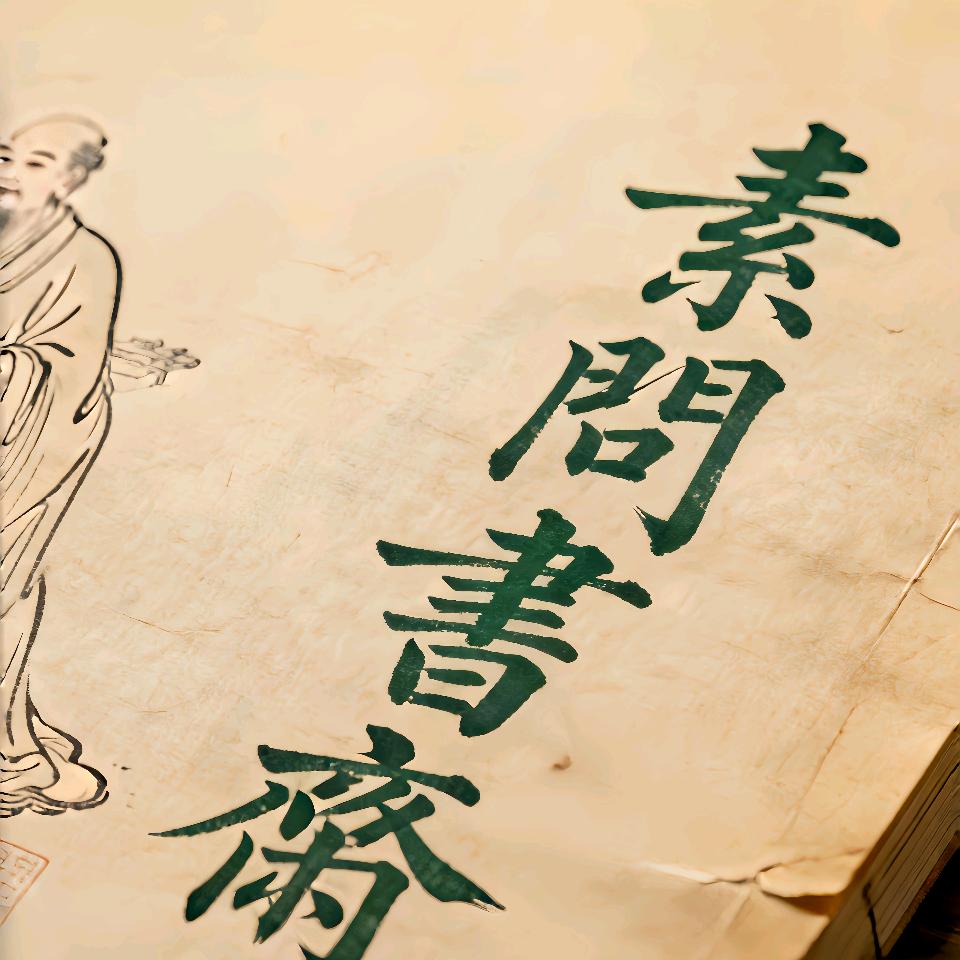 素問書齋